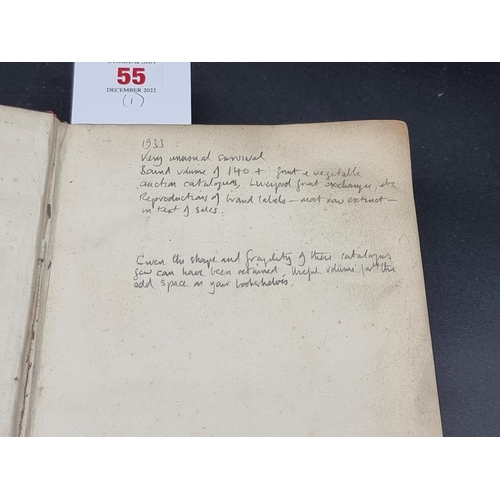 55
DECEMBER 2022
(1)
1933
Very unusual survival
Bound volume of 140 + fruit & vegetable
auction catalogues, Liverpool fruit exchange, etc
Reproductions of brand labels — most now extinct —
in text of sales.
Given the shape and fragility of these catalogues
few can have been retained. Useful volume for the
odd space on your bookshelves.